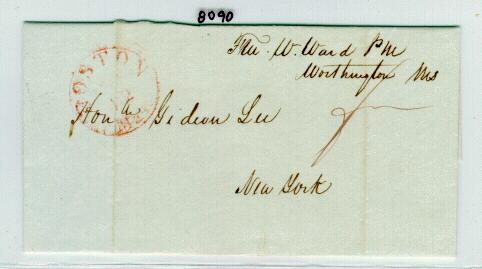 8090
W. Ward PM
Worthington Ms
BOSTON
Hon Gideon Lee
New York